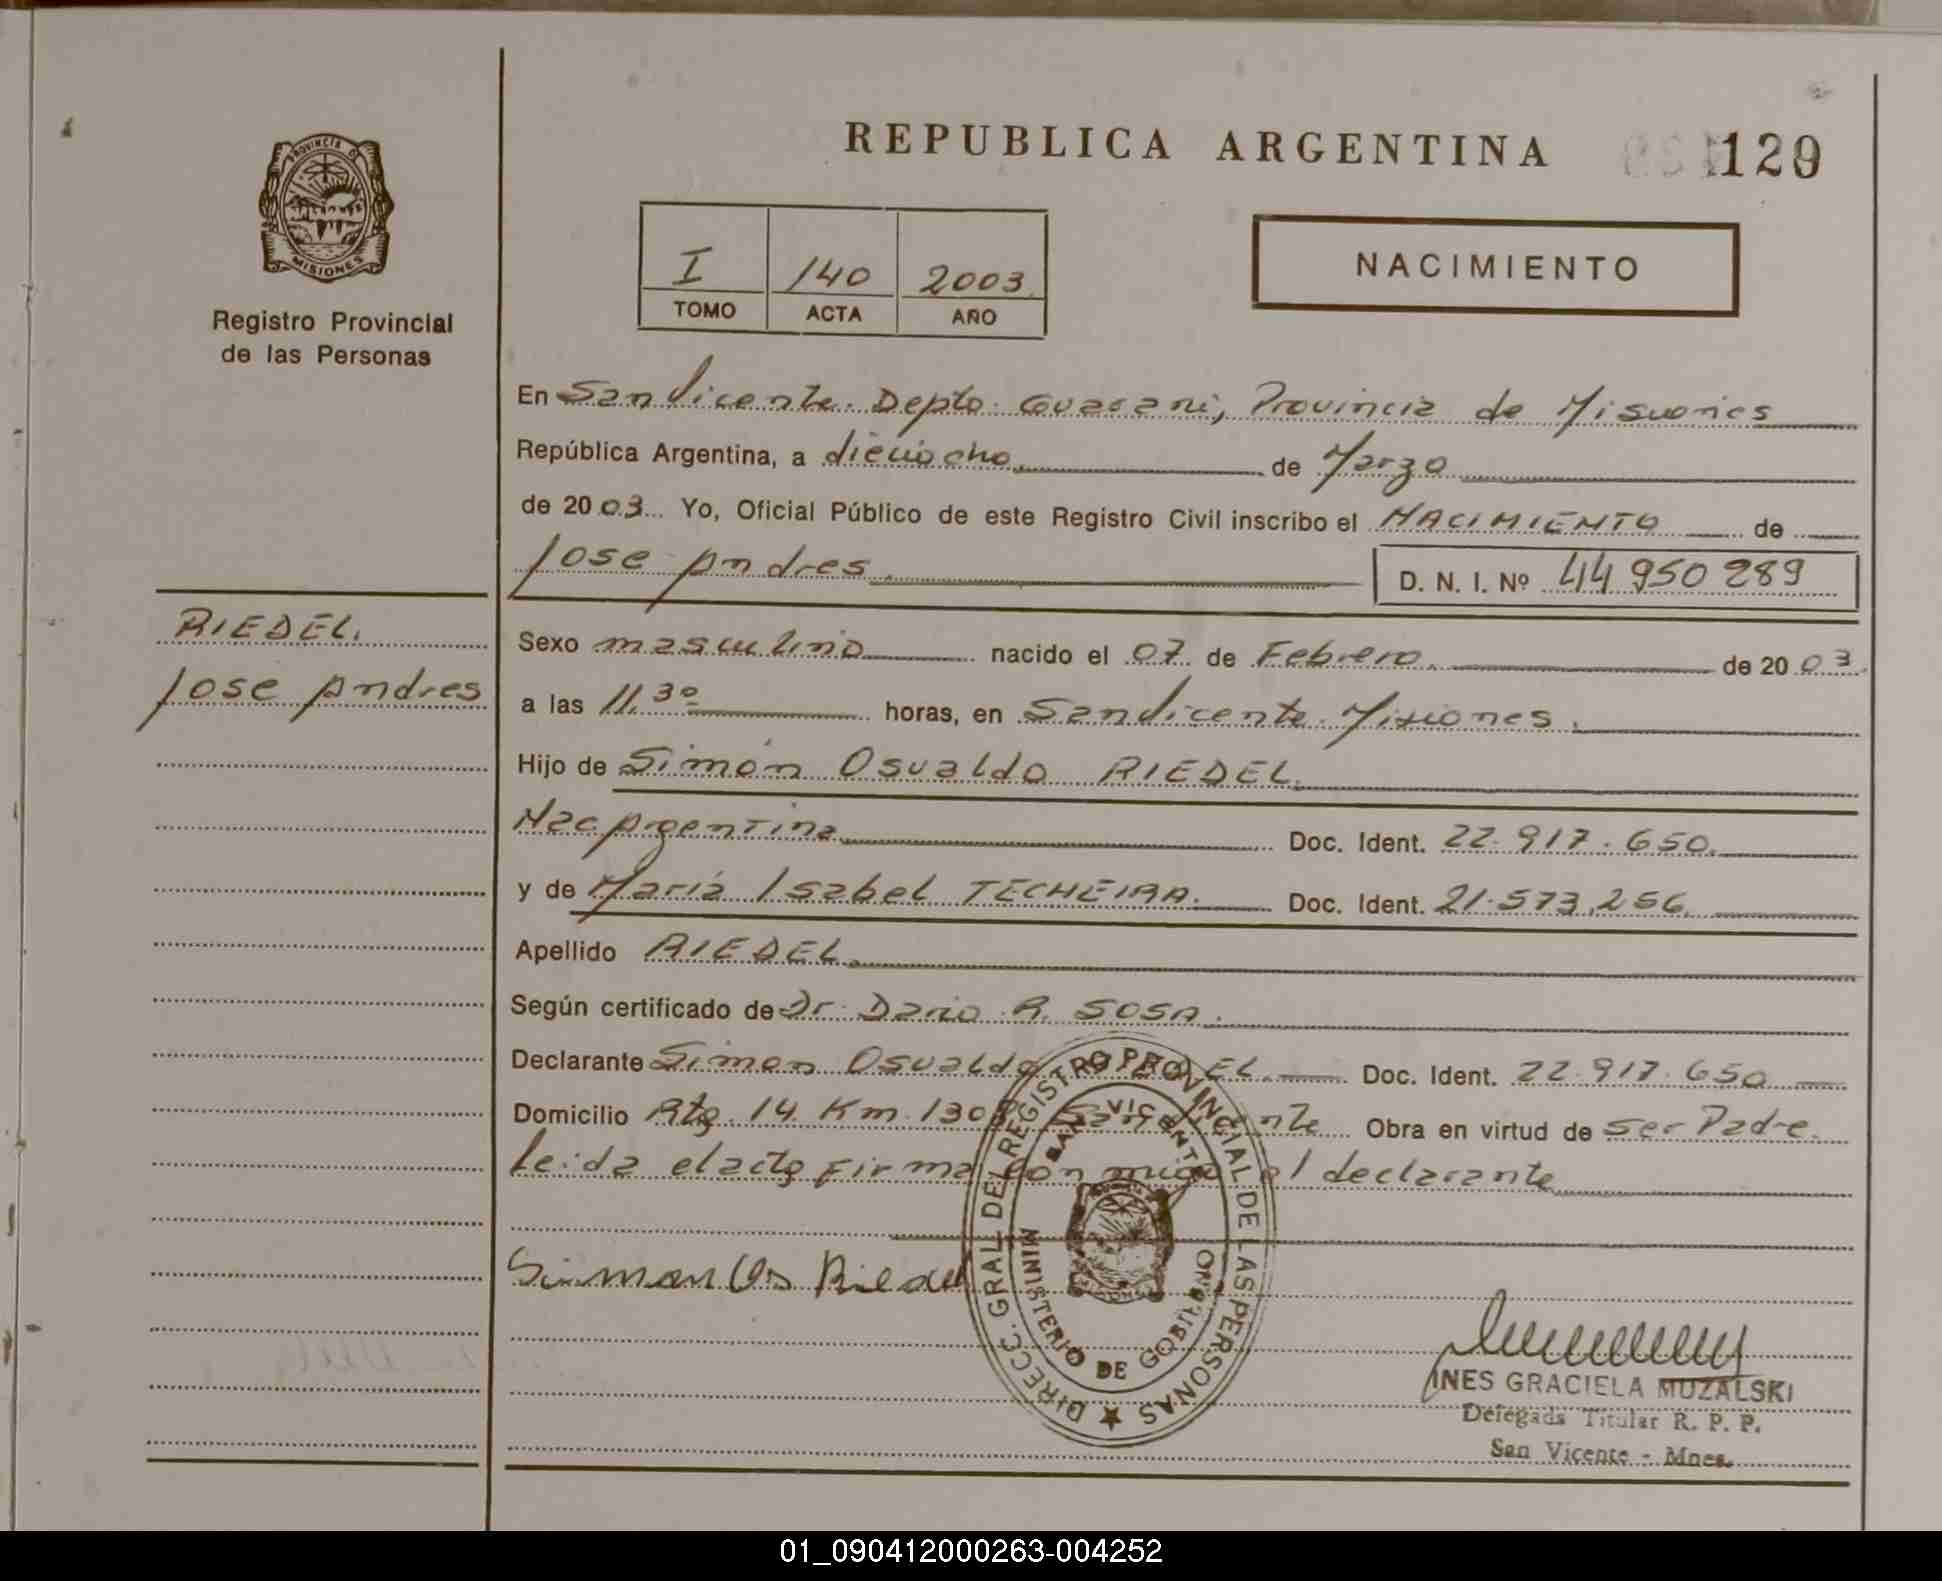 REPUBLICA ARGENTINA
129
PROVINCIA DE
MISIONES
Registro Provincial
de las Personas
I 140 2003
TOMO ACTA AÑO
NACIMIENTO
En San Vicente. Depto. Guarani, Provincia de Misiones
República Argentina, a dieciocho de Marzo
de 2003 Yo, Oficial Público de este Registro Civil inscribo el NACIMIENTO de
Jose Andres D. N. I. Nº 44950289
RIEDEL.
Jose Andres
Sexo masculino nacido el 07 de Febrero. de 2003
a las 11.30 horas, en San Vicente. Misiones.
Hijo de Simón Osvaldo RIEDEL.
Nac Argentina Doc. Ident. 22.917.650.
y de María Isabel TECHEIRA. Doc. Ident. 21.573.256.
Apellido RIEDEL.
Según certificado de Dr. Dario R. SOSA.
Declarante Simon Osvaldo RIEDEL. Doc. Ident. 22.917.650
Domicilio Rta. 14. Km. 1308 San Vicente Obra en virtud de ser Padre.
Leida el acta firma con migo el declarante
Simon Os Riedel
DIRECC. GRAL. DEL REGISTRO PROVINCIAL DE LAS PERSONAS
SAN VICENTE
MINISTERIO DE GOBIERNO
INES GRACIELA MUZALSKI
Delegada Titular R. P. P.
San Vicente - Mnes.
01_090412000263-004252